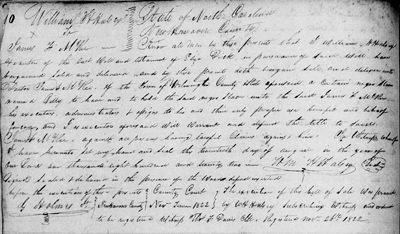 10 William H Haley State of North Carolina
To New Hanover County
James F McRee Know all men by these presents that I William H Haley
Executor of the last Will and testament of have
bargained Sold and delivered and by these presents doth bargain Sell and deliver unto
Doctor James F McRee of the Town of Wilmington County State aforesaid a Certain negro Man
named to have and to hold the Said negro Slave unto the Said James F McRee
his executors administrators & assigns to his and their only proper use benefit and behalf
forever, and I as executor aforesaid Will Warrant and defend the title to said
James F McRee against all persons having lawful Claims against him. In Witness whereof
I have hereunto Set my hand and Seal the twentieth day of August in the year of
our Lord one thousand eight hundred and twenty two Wm H Haley Seal
Signed Sealed & delivered in the presence of
before the execution of these presents County Court The execution of the bill of Sale Was proved
G Holmes New Hanover County Nov Term 1822 by W H Haley Subscribing Witness and ordered
to be registered Witness Tho F Davis Clk. Registered Nov 28th 1822